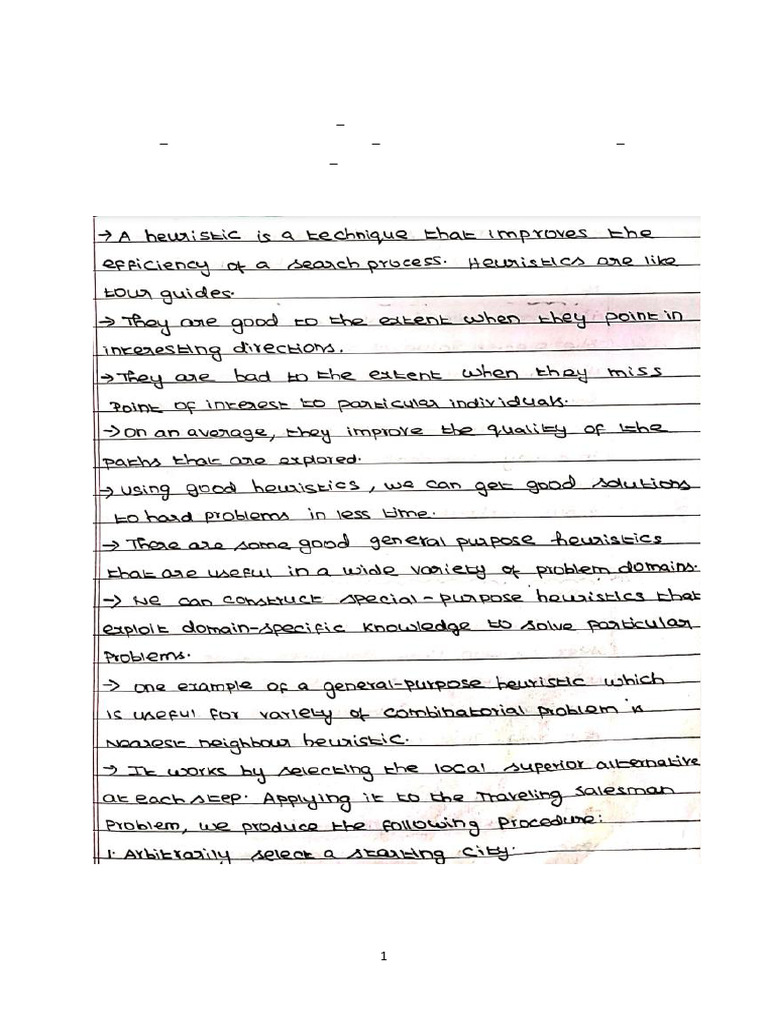 –
– – –
–
→ A heuristic is a technique that improves the
efficiency of a search process. Heuristics are like
tour guides.
→ They are good to the extent when they point in
interesting directions.
→ They are bad to the extent when they miss
point of interest to particular individuals.
→ On an average, they improve the quality of the
paths that are explored.
→ using good heuristics, we can get good solutions
to hard problems in less time.
→ There are some good general purpose heuristics
that are useful in a wide variety of problem domains.
→ We can construct special-purpose heuristics that
exploit domain-specific knowledge to solve particular
problems.
→ one example of a general-purpose heuristic which
is useful for variety of combinatorial problem is
Nearest neighbour heuristic.
→ It works by selecting the local superior alternative
at each step. Applying it to the Traveling Salesman
Problem, we produce the following Procedure:
1. Arbitrarily select a starting city.
1